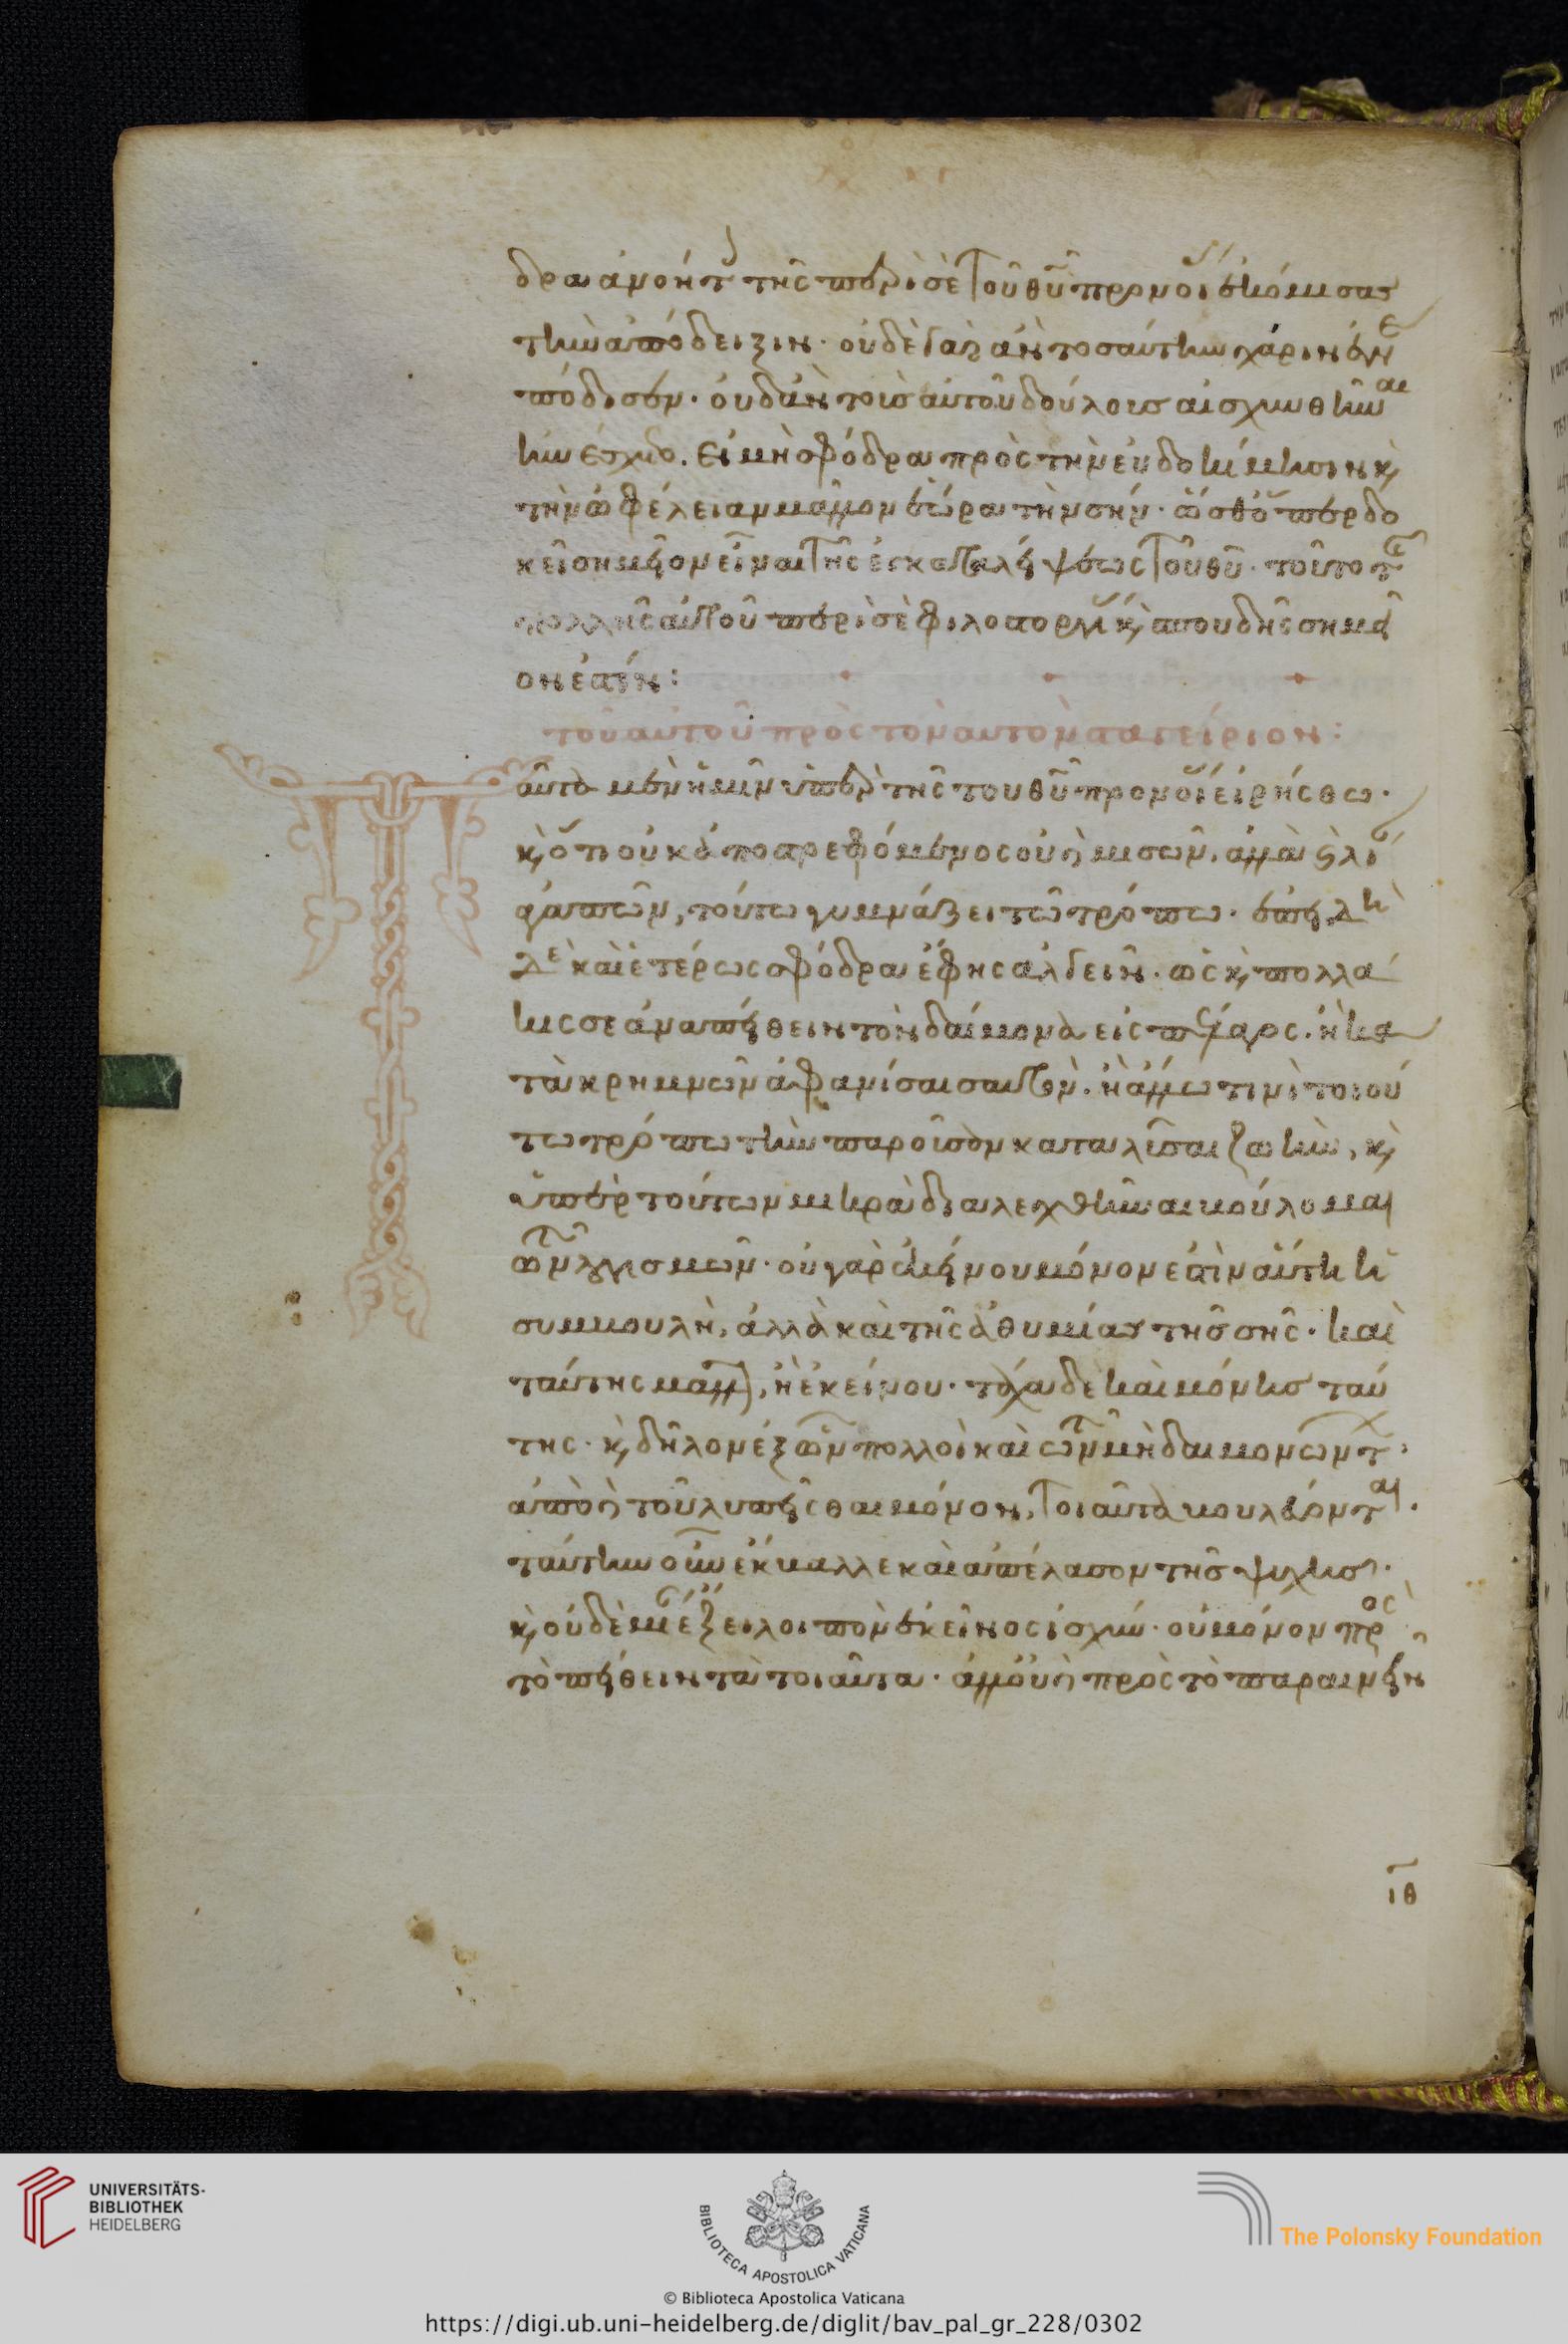 δρα ἀνοήτ τῆς περὶ σὲ τοῦ θυ προνοί ἐκόμισας
τὴν ἀπόδειξιν· οὐδὲ γὰρ ἂν τοσαύτην χάριν ἐνε
πόδισεν· οὐδ' ἂν τοῖς αὐτοῦ δούλοις αἰσχυνθῆναι
ἠνέσχετο. εἰ μὴ σφόδρα πρὸς τὴν εὐδοκίμησιν κ
τὴν ὠφέλειαν μᾶλλον ἑώρα τὴν σήν· ὥσθ' ὅπερ δο
κεῖ σημεῖον εἶναι τῆς ἐγκαταλείψεως τοῦ θυ· τοῦτο τῆς
πολλῆς αὐτοῦ περὶ σὲ φιλοστοργί κ σπουδῆς σημεῖ
ον ἐστίν:
τοῦ αὐτοῦ πρὸς τὸν αὐτὸν σταγείριον:
Ταῦτα μὲν ἡμῖν ὑπὲρ τῆς τοῦ θυ προνοί εἰρήσθω·
κ ὅτι οὐκ ἀποστρεφόμενος οὐδὲ μισῶν, ἀλλὰ κ λί
ἀγαπῶν, τούτω γυμνάζει τῶ τρόπω· ἐπειδὴ
δὲ καὶ ἑτέρως σφόδρα ἔφης ἀλγεῖν· ὡς κ πολλά
κις σε ἀναπείθειν τὸν δαίμονα εἰς πέλαγος. ἢ κα
τὰ κρημνῶν ἀφανίσαι σαυτὸν. ἢ ἄλλω τινὶ τοιού
τω τρόπω τὴν παροῦσαν καταλῦσαι ζωὴν, κ
ὑπὲρ τούτων μικρὰ διαλεχθῆναι βούλομαι
τῶν λογισμῶν· οὐ γὰρ ἐκείνου μόνον ἐστὶν αὕτη ἡ
συμβουλὴ, ἀλλὰ καὶ τῆς ἀθυμίας τῆς σῆς· καὶ
ταύτης μᾶλλον, ἢ ἐκείνου· τάχα δὲ καὶ μόνης ταύ
της· κ δῆλον ἐξ ὧν πολλοὶ καὶ τῶν μὴ δαιμονώντων·
ἀπὸ δὲ τοῦ λυπεῖσθαι μόνον, τοιαῦτα βουλεύονται.
ταύτην οὖν ἔκβαλλε καὶ ἀπέλασον τῆς ψυχῆς·
κ οὐδὲ ἕξει λοιπὸν ἐκεῖνος ἰσχύν· οὐ μόνον πρὸς
τὸ πείθειν τὰ τοιαῦτα· ἀλλ' οὐδὲ πρὸς τὸ παραινεῖν
ιθ
UNIVERSITÄTS-
BIBLIOTHEK
HEIDELBERG
BIBLIOTECA APOSTOLICA VATICANA
The Polonsky Foundation
© Biblioteca Apostolica Vaticana
https://digi.ub.uni-heidelberg.de/diglit/bav_pal_gr_228/0302